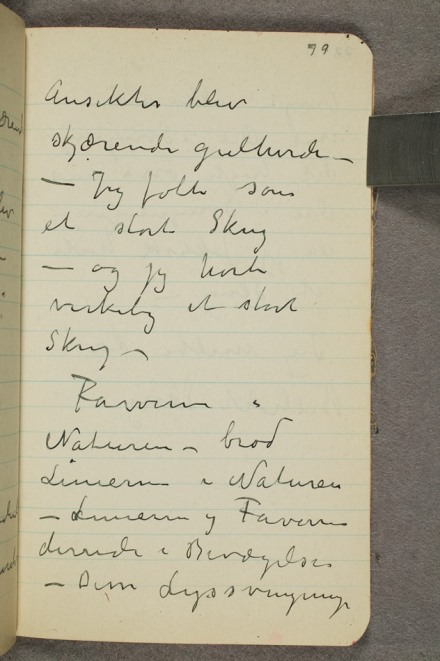 79
Ansikter blev
skjærende gulhvide –
– Jeg følte som
et stort Skrig
– og jeg hørte
virkelig et stort
Skrig –
Farverne i
Naturen – brød
Linierne i Naturen
– Linierne og Farverne
dirrende i Bevægelse
– Disse Lyssvingninger